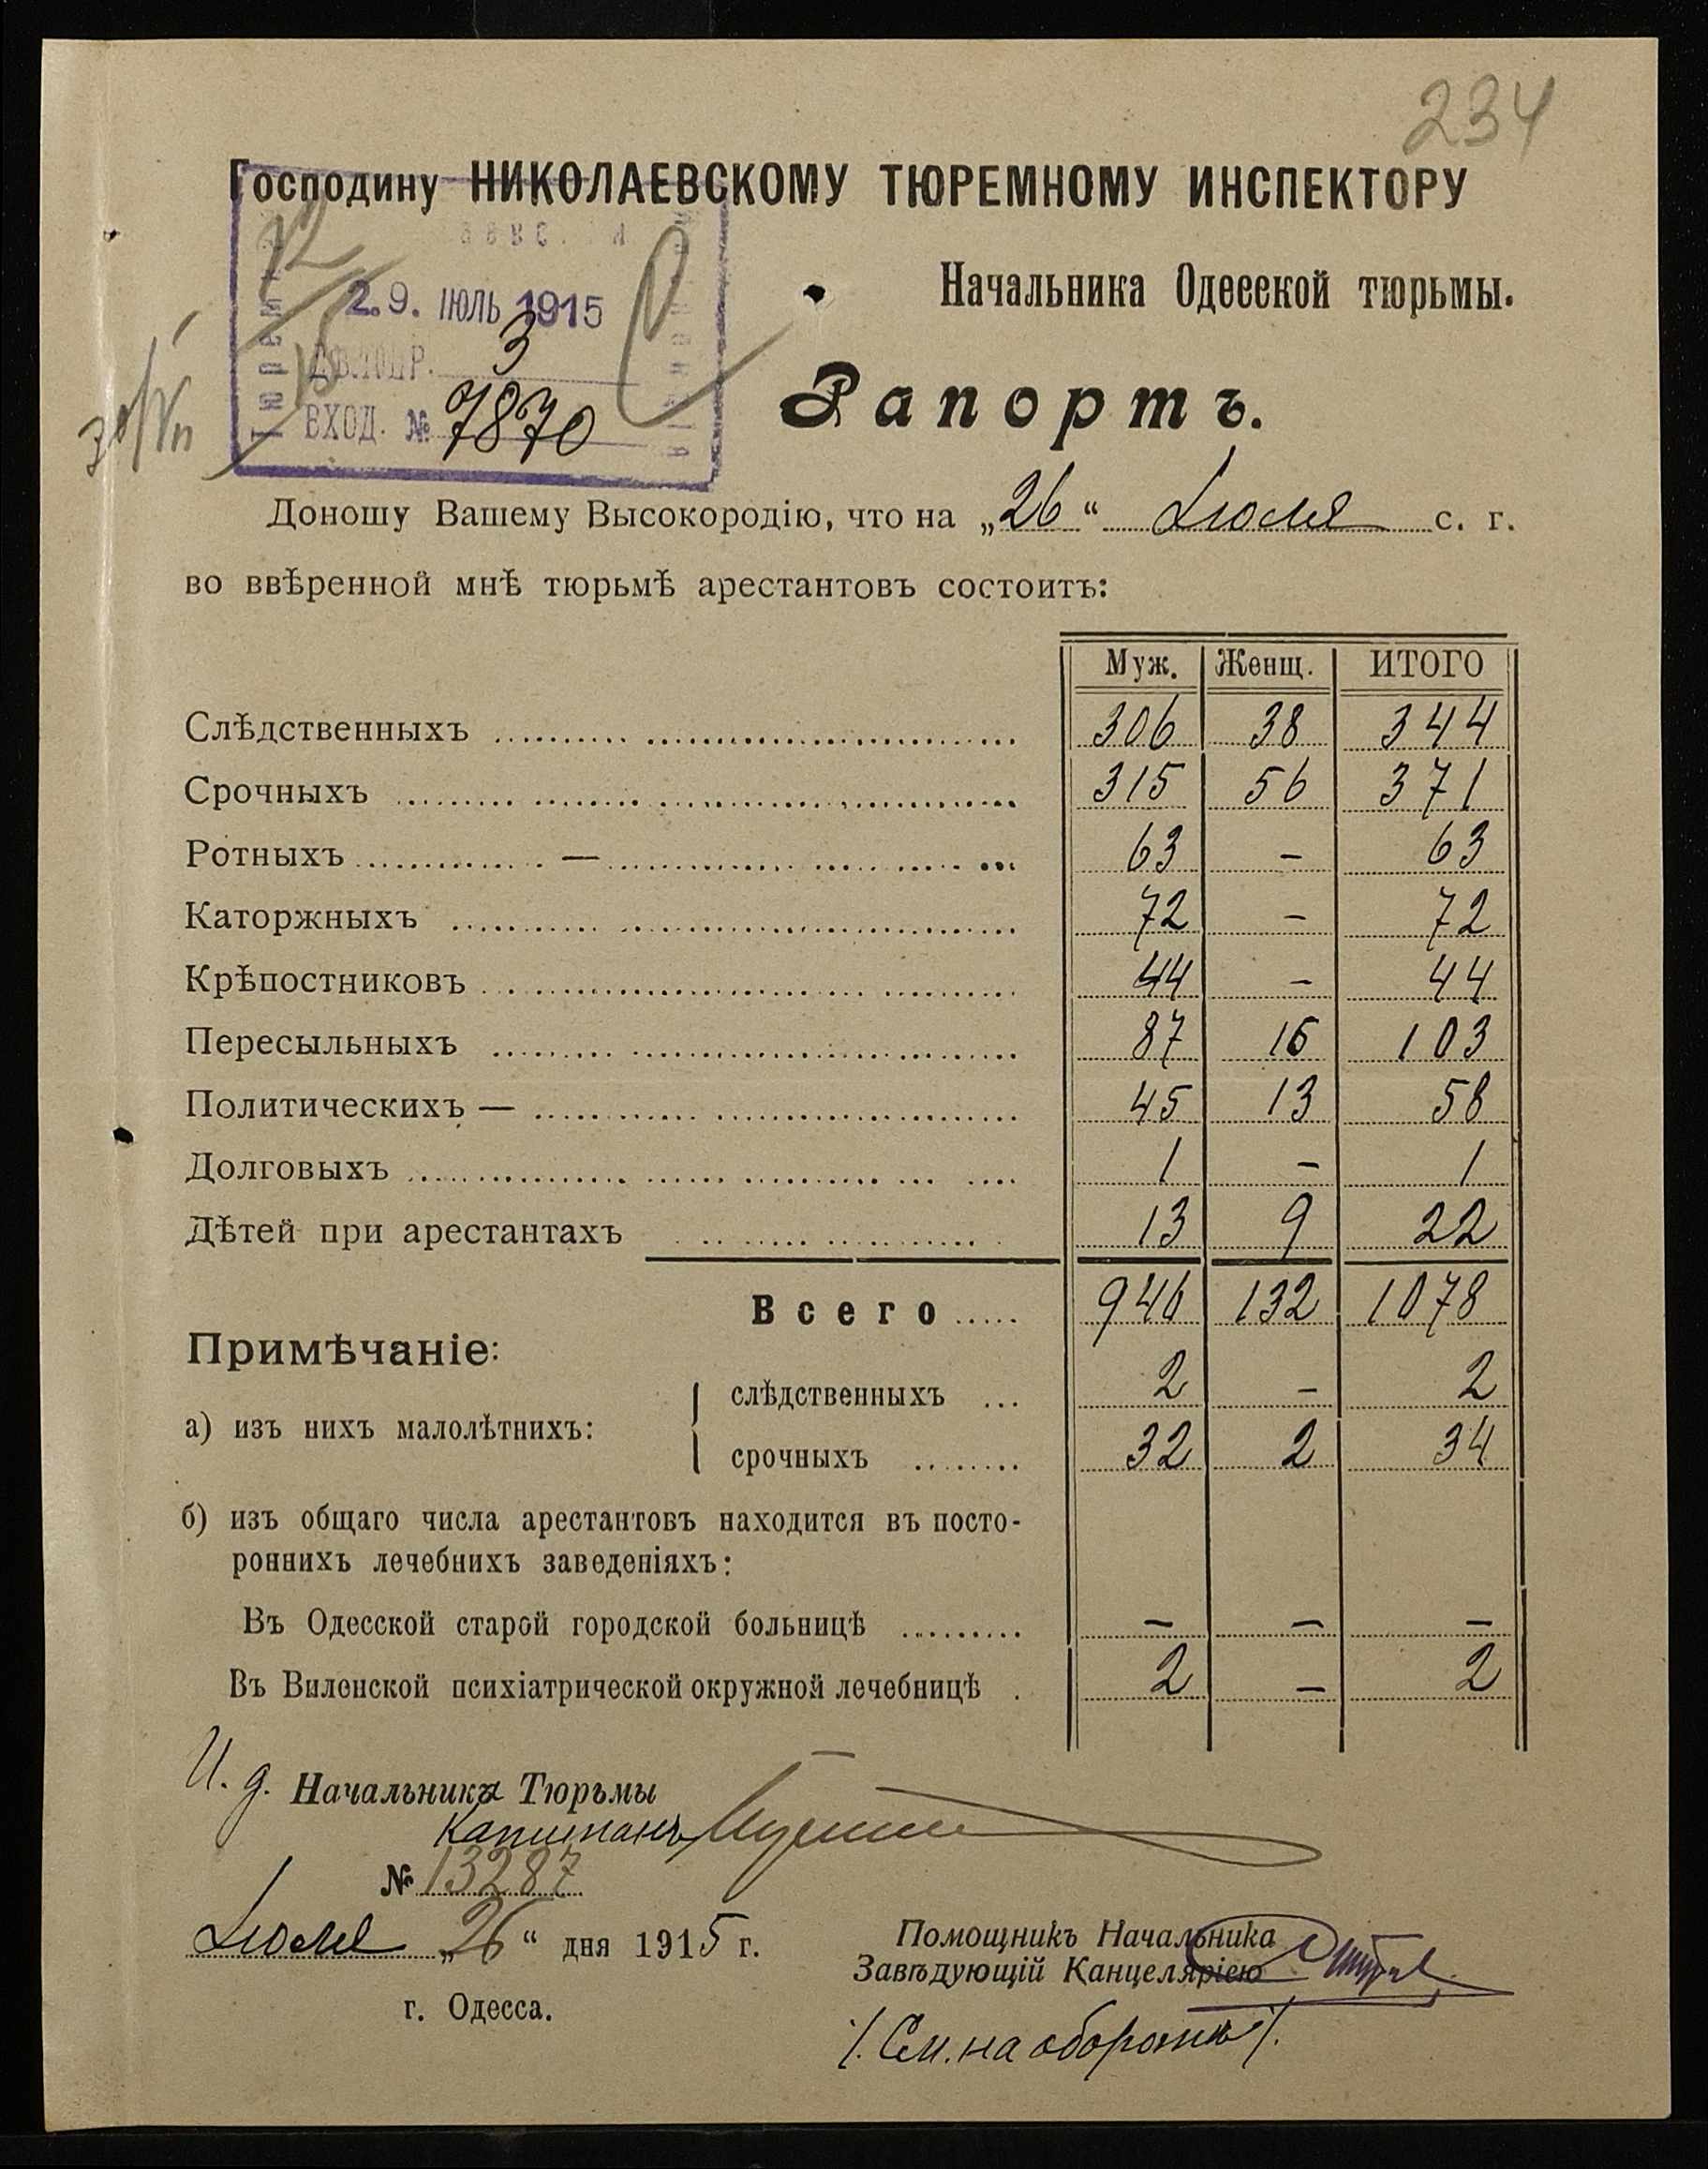 234
Господину НИКОЛАЕВСКОМУ ТЮРЕМНОМУ ИНСПЕКТОРУ
29. ІЮЛЬ 1915
3
ВХОД. № 7870
30/VII
Начальника Одесской тюрьмы.
Рапортъ.
Доношу Вашему Высокородію, что на „26“ Іюля с. г.
во ввѣренной мнѣ тюрьмѣ арестантовъ состоитъ:
Муж. Женщ. ИТОГО
Слѣдственныхъ 306 38 344
Срочныхъ 315 56 371
Ротныхъ — 63 - 63
Каторжныхъ 72 - 72
Крѣпостниковъ 44 - 44
Пересыльныхъ 87 16 103
Политическихъ — 45 13 58
Долговыхъ 1 - 1
Дѣтей при арестантахъ 13 9 22
Всего 946 132 1078
Примѣчаніе:
а) изъ нихъ малолѣтнихъ: слѣдственныхъ 2 - 2
срочныхъ 32 2 34
б) изъ общаго числа арестантовъ находится въ посто-
роннихъ лечебнихъ заведеніяхъ:
Въ Одесской старой городской больницѣ - - -
Въ Виленской психіатрической окружной лечебницѣ 2 - 2
И. д. Начальника Тюрьмы
Капитанъ
№ 13287
Іюля „26“ дня 1915 г.
г. Одесса.
Помощникъ Начальника
Завѣдующій Канцеляріею
/. См. на оборотѣ /.